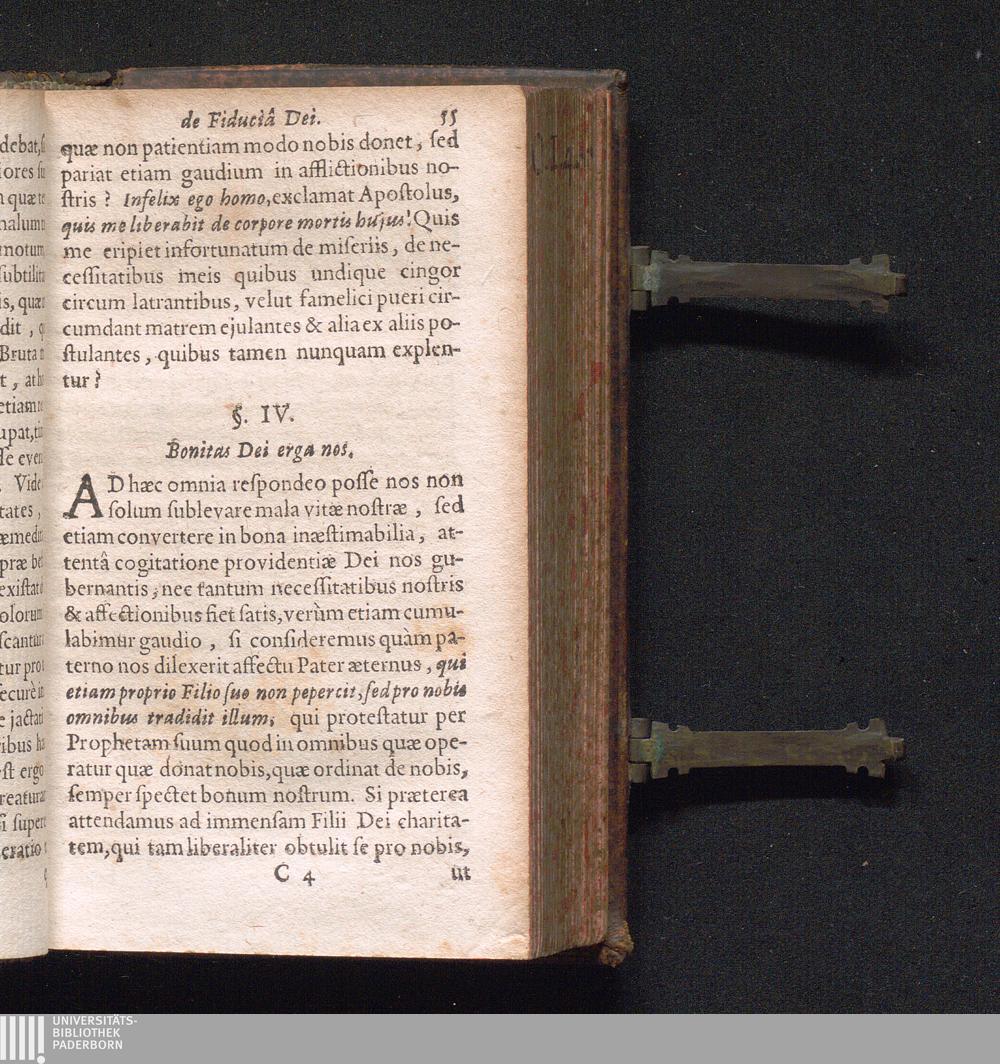 de Fiduciâ Dei. 55
quæ non patientiam modo nobis donet, ſed
pariat etiam gaudium in afflictionibus no-
ſtris? Infelix ego homo, exclamat Apoſtolus,
quis me liberabit de corpore mortis hujus! Quis
me eripiet infortunatum de miſeriis, de ne-
ceſſitatibus meis quibus undique cingor
circum latrantibus, velut famelici pueri cir-
cumdant matrem ejulantes & alia ex aliis po-
ſtulantes, quibus tamen nunquam explen-
tur?
§. IV.
Bonitas Dei erga nos.
AD hæc omnia reſpondeo poſſe nos non
ſolum ſublevare mala vitæ noſtræ, ſed
etiam convertere in bona inæſtimabilia, at-
tentâ cogitatione providentiæ Dei nos gu-
bernantis, nec tantum neceſſitatibus noſtris
& affectionibus fiet ſatis, verùm etiam cumu-
labimur gaudio, ſi conſideremus quàm pa-
terno nos dilexerit affectu Pater æternus, qui
etiam proprio Filio ſuo non pepercit, ſed pro nobis
omnibus tradidit illum, qui proteſtatur per
Prophetam ſuum quod in omnibus quæ ope-
ratur quæ donat nobis, quæ ordinat de nobis,
ſemper ſpectet bonum noſtrum. Si præterea
attendamus ad immenſam Filii Dei charita-
tem, qui tam liberaliter obtulit ſe pro nobis,
C 4 ut
UNIVERSITÄTS-
BIBLIOTHEK
PADERBORN